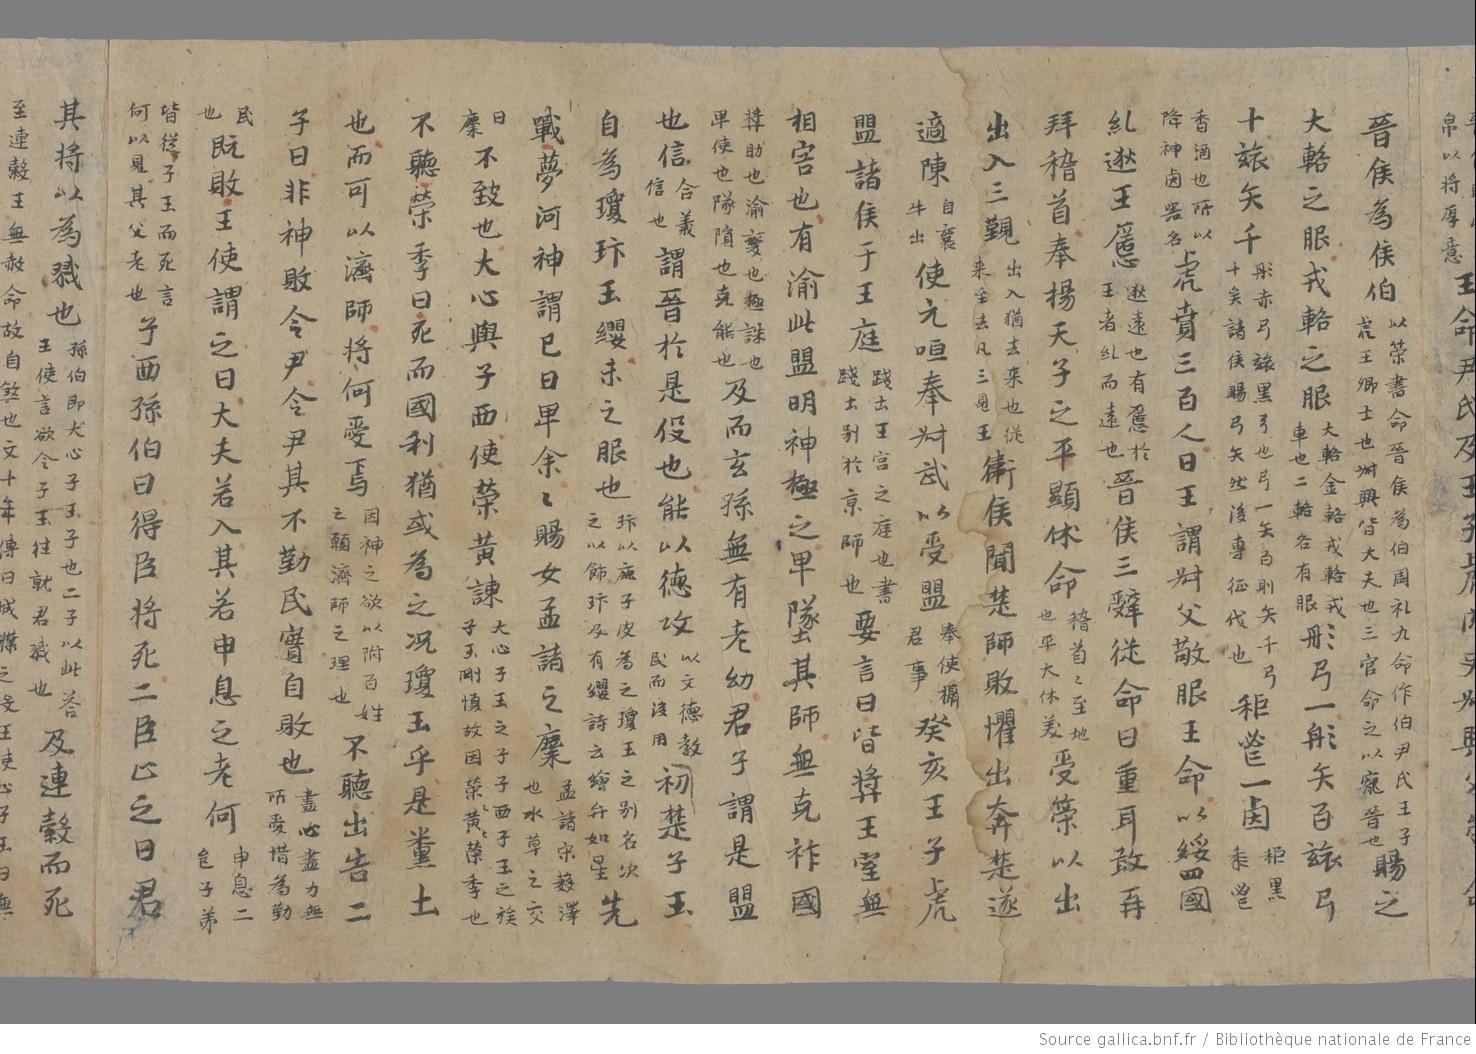 帛以将厚意
王命尹氏及王子虎内史叔興
晉侯為侯伯
以策書命晉侯為伯周礼九命作伯尹氏王子
虎王卿士也叔興皆大夫也三官命之以寵晉也
賜之
大輅之服戎輅之服
大輅金輅戎輅戎
車也二輅各有服
彤弓一彤矢百玈弓
十玈矢千
彤赤弓玈黑弓也弓一矢百則矢千弓
十矣諸侯賜弓矢然後專征伐也
秬鬯一卣
秬黑
黍鬯
香酒也所以
降神卣器名
虎賁三百人曰王謂叔父敬服王命以綏四國
糺逖王慝
逖遠也有慝於
王者糺而遠也
晉侯三辭從命曰重耳敢再
拜稽首奉揚天子之平顯休命
稽首〻至地
也平大休美
受策以出
出入三覲
出入猶去来也従
来至去凡三見王
衛侯聞楚師敗懼出奔楚遂
適陳
自襄
牛出
使元咺奉叔武以受盟
奉使攝
君事
癸亥王子虎
盟諸侯于王庭
踐土王宮之庭也書
踐土別於京師也
要言曰皆奨王室無
相害也有渝此盟明神極之卑墜其師無克祚國
奨助也渝變也極誅也
卑使也隊隕也克能也
及而玄孫無有老幼君子謂是盟
也信
合義
信也
謂晉於是役也能以德攻
以文德教
民而後用
初楚子玉
自為瓊玤玉纓未之服也
玤以鹿子皮為之瓊玉之別名次
之以飾玤及有纓詩云繪弁如星
先
戰夢河神謂己曰卑余〻賜女孟諸之麋
孟諸宋藪澤
也水草之交
曰
麋
不致也大心與子西使榮黃諫
大心子玉之子子西子玉之族
子玉剛愎故因榮〻黃〻榮季也
不聽榮季曰死而國利猶或為之况瓊玉乎是糞土
也而可以濟師將何愛焉
因神之欲以附百姓
之願濟師之理也
不聽出告二
子曰非神敗令尹令尹其不勤民實自敗也
盡心盡力無
所愛惜為勤
民
也
既敗王使謂之曰大夫若入其若申息之老何
申息二
邑子弟
皆從子玉而死言
何以見其父老也
子西孫伯曰得臣將死二臣止之曰君
其將以為戮也
孫伯即大心子玉子也二子以此答
王使言欲令子玉往就君戮也
及連穀而死
至連穀王無赦命故自煞也文十年傳曰城濮之役王使止子玉曰無
Source gallica.bnf.fr / Bibliothèque nationale de France